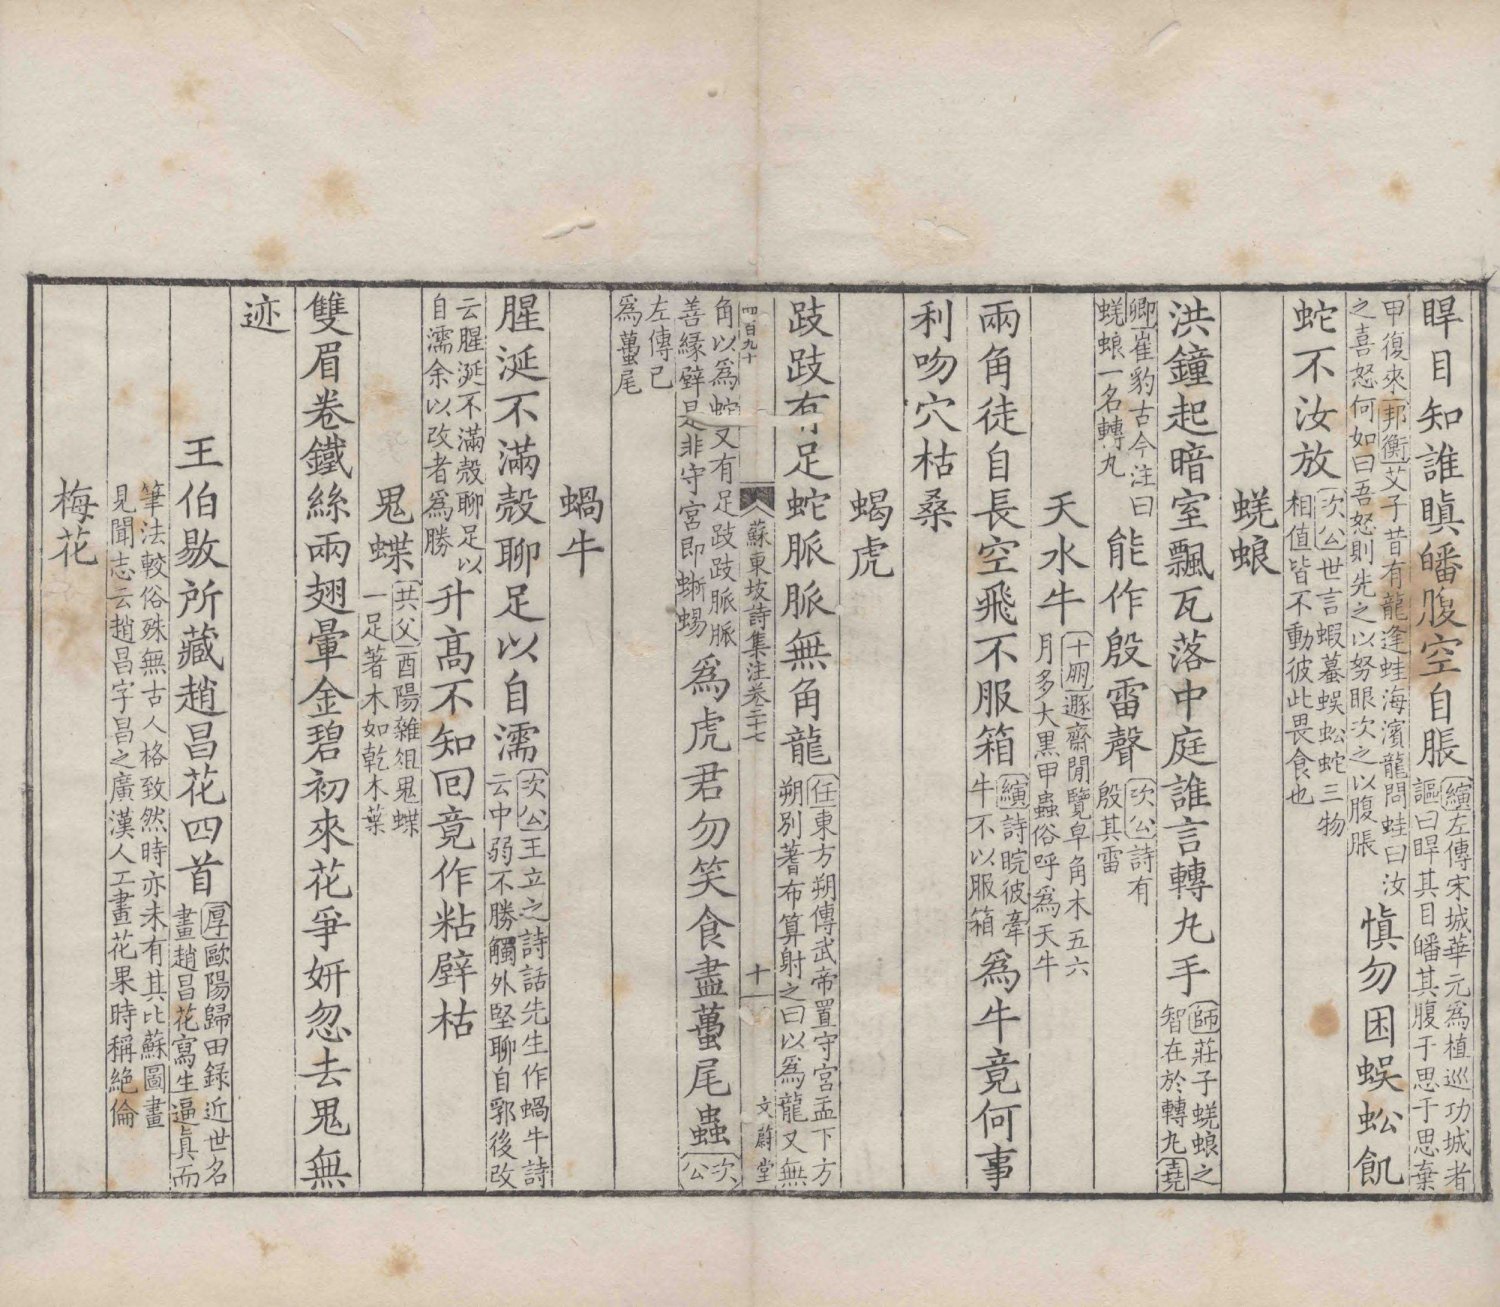 睅目知誰瞋皤腹空自脹縯左傳宋城華元爲植巡功城者謳曰睅其目皤其腹于思于思棄
甲復來邦衡艾子昔有龍逢蛙海濱龍問蛙曰汝之喜怒何如曰吾怒則先之以努眼次之以腹脹慎勿困蜈蚣飢
蛇不汝放次公世言蝦蟇蜈蚣蛇三物相值皆不動彼此畏食也
蜣蜋
洪鐘起暗室飄瓦落中庭誰言轉丸手師莊子蜣蜋之智在於轉丸堯
卿崔豹古今注曰蜣蜋一名轉丸能作殷雷聲次公詩有殷其雷
天水牛十朋遯齋閒覽皁角木五六月多大黑甲蟲俗呼爲天牛
兩角徒自長空飛不服箱縯詩睆彼牽牛不以服箱爲牛竟何事
利吻穴枯桑
蝎虎
跂跂有足蛇脈脈無角龍任東方朔傳武帝置守宮盂下方朔别蓍布算射之曰以爲龍又無
四百九十
蘇東坡詩集注卷二十七
十
文蔚堂
角以爲蛇又有足跂跂脈脈善緣壁是非守宮即蜥蜴爲虎君勿笑食盡蠆尾蟲次公
左傳已爲蠆尾
蝸牛
腥涎不滿殼聊足以自濡次公王立之詩話先生作蝸牛詩云中弱不勝觸外堅聊自郭後改
云腥涎不滿殼聊足以自濡余以改者爲勝升高不知回竟作粘壁枯
鬼蝶共父酉陽雜俎鬼蝶一足著木如乾木葉
雙眉卷鐵絲兩翅暈金碧初來花爭妍忽去鬼無
迹
王伯敭所藏趙昌花四首厚歐陽歸田録近世名畫趙昌花寫生逼真而
筆法較俗殊無古人格致然時亦未有其比蘇圖畫見聞志云趙昌字昌之廣漢人工畫花果時稱絶倫
梅花